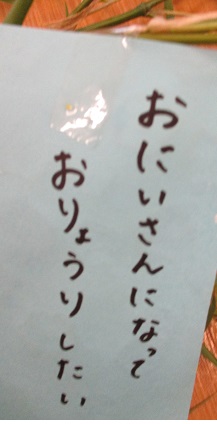 おにいさんになって
おりょうりしたい